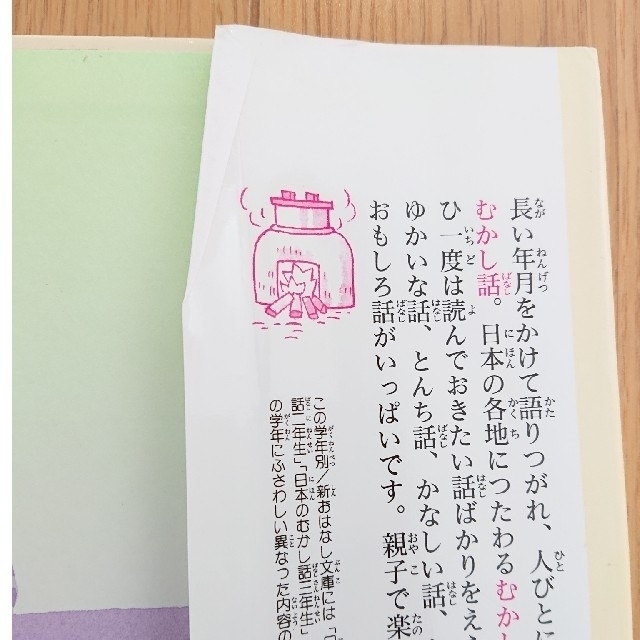 長い年月をかけて語りつがれ、人びと
むかし話。日本の各地につたわるむか
ひ一度は読んでおきたい話ばかりをえ
ゆかいな話、とんち話、かなしい話、
おもしろ話がいっぱいです。親子で楽
この学年別/新おはなし文庫には「
話二年生」「日本のむかし話三年生」
の学年にふさわしい異なった内容の